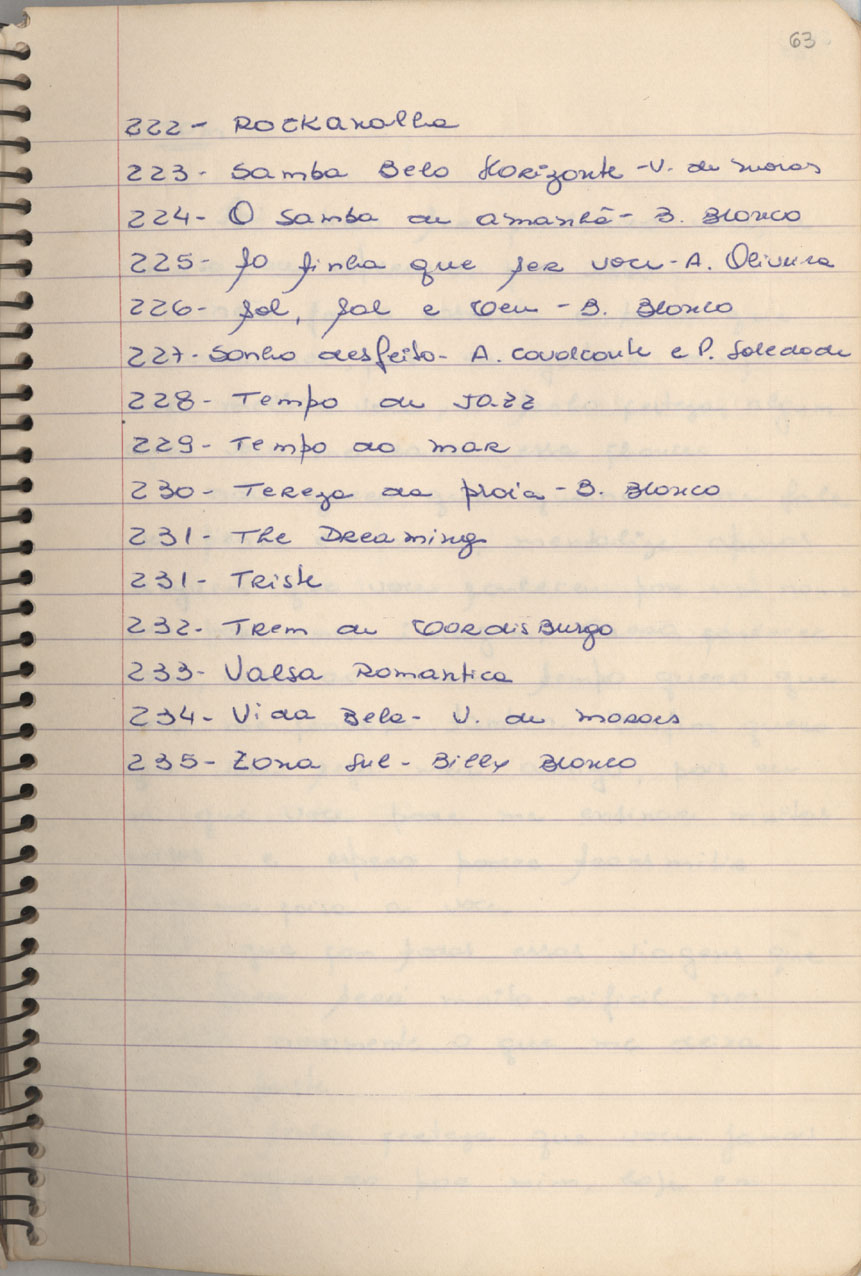 63
222- Rockanalha
223- Samba Belo Horizonte - V. de Moraes
224- O Samba de amanhã - B. Blanco
225- Só tinha que ser você - A. Oliveira
226- Sol, Sal e Céu - B. Blanco
227- Sonho desfeito - A. Cavalcante e P. Soledade
228- Tempo de Jazz
229- Tempo do mar
230- Tereza da praia - B. Blanco
231- The Dreaming
231- Triste
232- Trem de CordisBurgo
233- Valsa Romantica
234- Vida Bela - V. de Moraes
235- Zona Sul - Billy Blanco